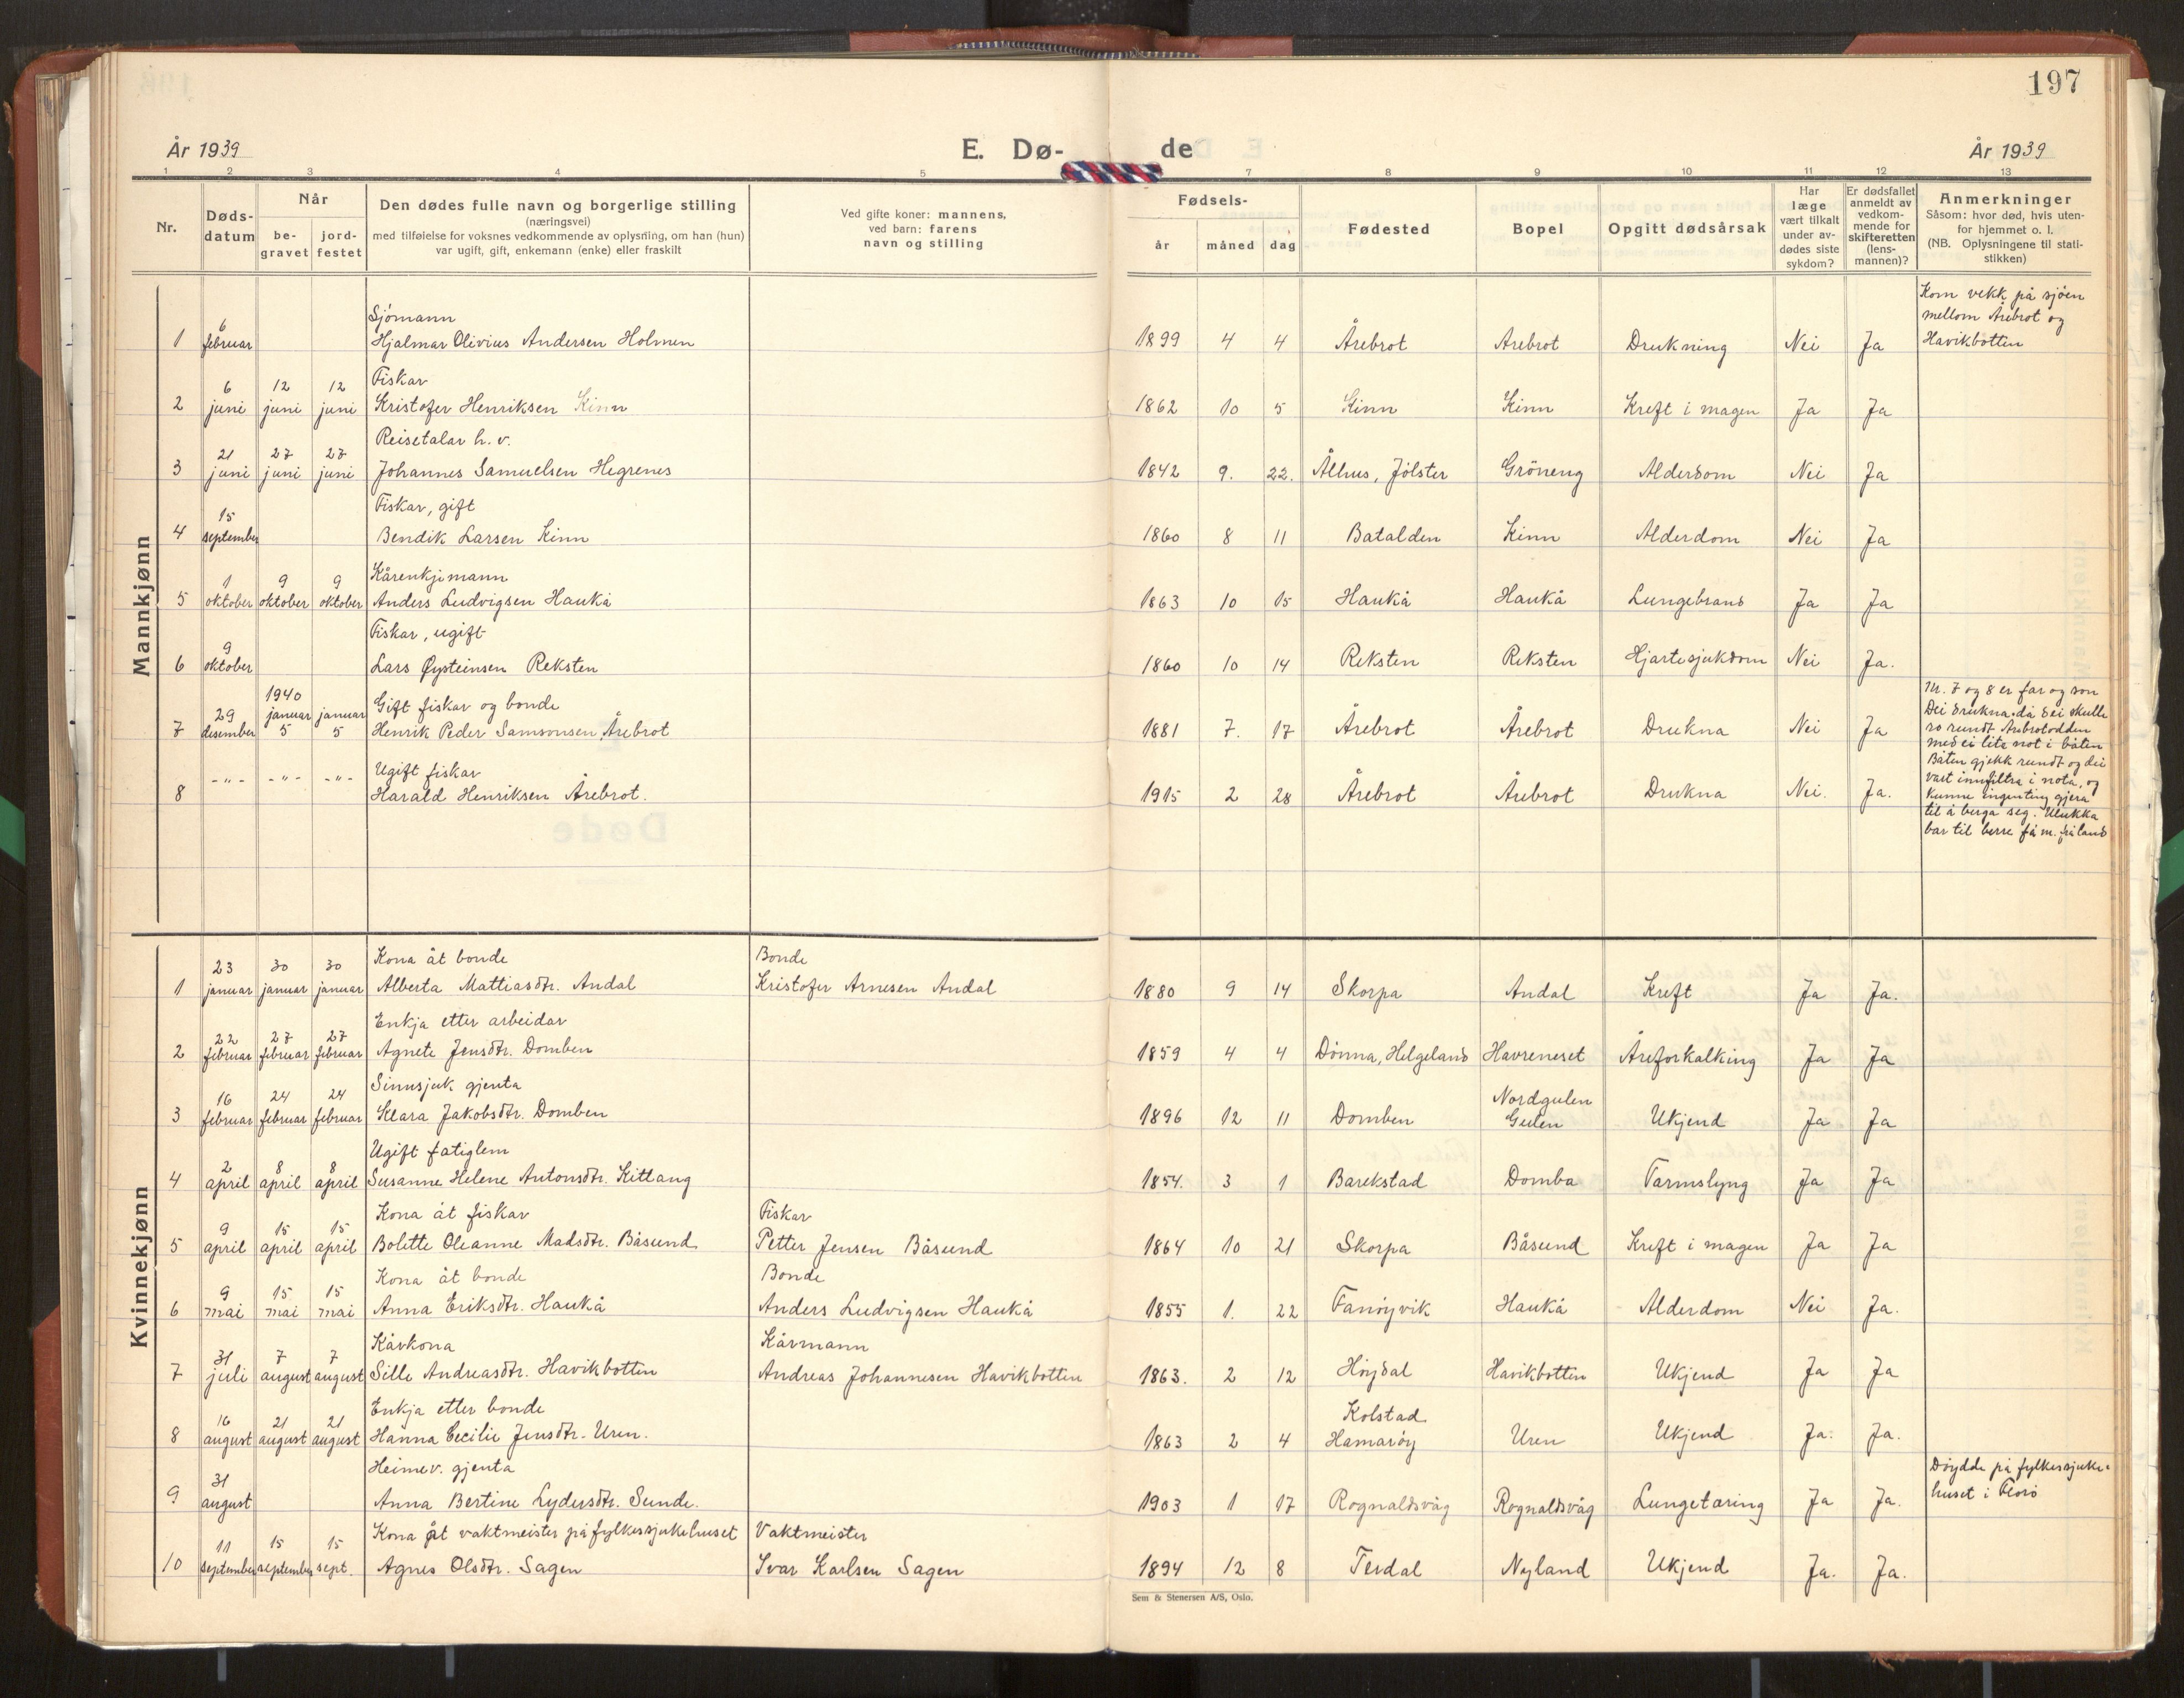 197
År 1939
E. Dø-
de
År 1939
1 2 3 4 5 7 8 9 10 11 12 13
Nr.
Døds-
datum
Når
be-
gravet
jord-
festet
Den dødes fulle navn og borgerlige stilling
(næringsvei)
med tilføielse for voksnes vedkommende av oplysning, om han (hun)
var ugift, gift, enkemann (enke) eller fraskilt
Ved gifte koner: mannens,
ved barn: farens
navn og stilling
Fødsels-
år måned dag
Fødested
Bopel
Opgitt dødsårsak
Har
læge
vært tilkalt
under av-
dødes siste
sykdom?
Er dødsfallet
anmeldt av
vedkom-
mende for
skifteretten
(lens-
mannen)?
Anmerkninger
Såsom: hvor død, hvis uten-
for hjemmet o. l.
(NB. Oplysningene til stati-
stikken)
Mannkjønn
6 Sjömann
1 februar Hjalmar Olivius Andersen Holmen 1899 4 4 Årebrot Årebrot Drukning Nei Ja
Kom vekk på sjöen
mellom Årebrot og
Havikbotten
6 12 12 Fiskar
2 juni juni juni Kristofer Henriksen Kinn 1862 10 5 Kinn Kinn Kreft i magen Ja Ja
21 27 27 Reisetalar h. v.
3 juni juni juni Johannes Samuelsen Hegrenes 1842 9. 22. Ålhus, Jölster Gröneng Alderdom Nei Ja
15 Fiskar, gift
4 september Bendik Larsen Kinn 1860 8 11 Batalden Kinn Alderdom Nei Ja
1 9 9 Kårenkjemann
5 oktober oktober oktober Anders Ludvigsen Haukå 1863 10 15 Haukå Haukå Lungebrand Ja Ja
9 Fiskar, ugift
6 oktober Lars Øysteinsen Reksten 1860 10 14 Reksten Reksten Hjartesjukdom Nei Ja.
1940
29 januar januar Gift fiskar og bonde
7 desember 5 5 Henrik Peder Samsonsen Årebrot 1881 7. 17 Årebrot Årebrot Drukna Nei Ja
-"- -"- -"- Ugift fiskar
8 Harald Henriksen Årebrot. 1915 2 28 Årebrot Årebrot Drukna Nei. Ja.
Nr. 7 og 8 er far og son
Dei drukna då dei skulle
ro rundt Årebrotodden
med ei lita not i båten
Båten gjekk rundt og dei
vart innfiltra i nota, og
kunne ingenting gjera
til å berga seg. Ulukka
bar til berre få m. frå land
Kvinnekjønn
23 30 30 Kona åt bonde Bonde
1 januar januar januar Alberta Mattiasdtr. Andal Kristofer Arnesen Andal 1880 9 14 Skorpa Andal Kreft Ja Ja.
22 27 27 Enkja etter arbeidar
2 februar februar februar Agnete Jensdtr. Domben 1859 4 4 Dönna, Helgeland Havreneset Åreforkalking Ja Ja
16 24 24 Sinnsjuk gjenta Nordgulen
3 februar februar februar Klara Jakobsdtr. Domben 1896 12 11 Domben Gulen Ukjend Ja Ja
2 8 8 Ugift fatiglem
4 april april april Susanne Helene Antonsdtr. Kittang 1854. 3 1 Barekstad Domba Tarmslyng Ja Ja
9 15 15 Kona åt fiskar Fiskar
5 april april april Bolette Oleanne Madsdtr. Båsund Petter Jensen Båsund 1864 10 21 Skorpa Båsund Kreft i magen Ja Ja
9 15 15 Kona åt bonde Bonde
6 mai mai mai Anna Eriksdtr. Haukå Anders Ludvigsen Haukå 1855 1. 22 Fanöyvik Haukå Alderdom Nei Ja.
31 7 7 Kårkona Kårmann
7 juli august august Sille Andreasdtr. Havikbotten Andreas Johannesen Havikbotten 1863. 2 12 Höydal Havikbotten Ukjend Ja Ja
16 21 21 Enkja etter bonde Kolstad
8 august august august Hanna Cecilie Jensdtr. Uren. 1863 2 4 Hamaröy Uren Ukjend Ja. Ja.
31 Heimev. gjenta
9 august Anna Bertine Lydersdtr. Sunde. 1903 1 17 Rognaldsvåg Rognaldsvåg Lungetæring Ja Ja.
Döydde på fylkessjuke-
huset i Florö
11 15 15 Kona åt vaktmeister på fylkessjukehuset Vaktmeister
10 september september sept. Agnes Olsdtr. Sagen Ivar Karlsen Sagen 1894 12 8 Terdal Nyland Ukjend Ja. Ja.
Sem & Stenersen A/S, Oslo.